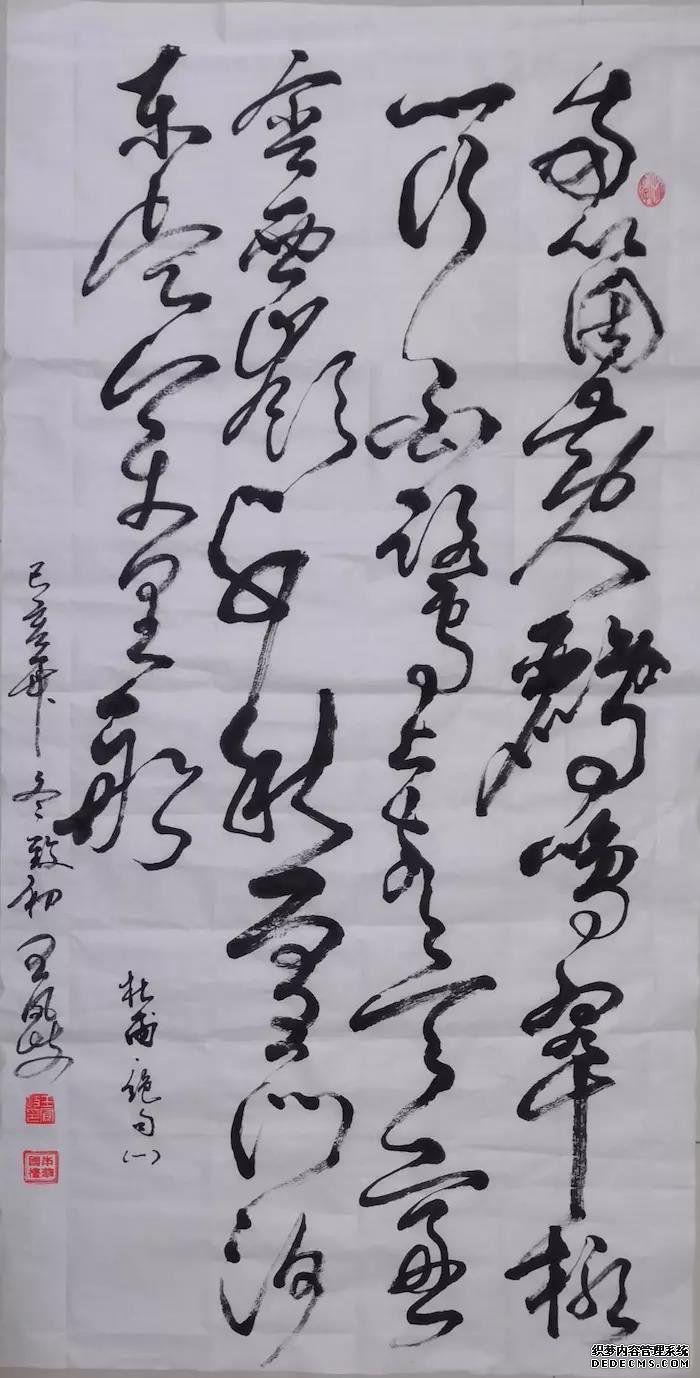 两箇黄鹂鸣翠柳
一行白鹭上青天窗
含西岭千秋雪门泊
东吴万里船
杜甫·绝句(一)
己亥年冬 初 王凤岐
织梦内容管理系统
DEDECMS.COM